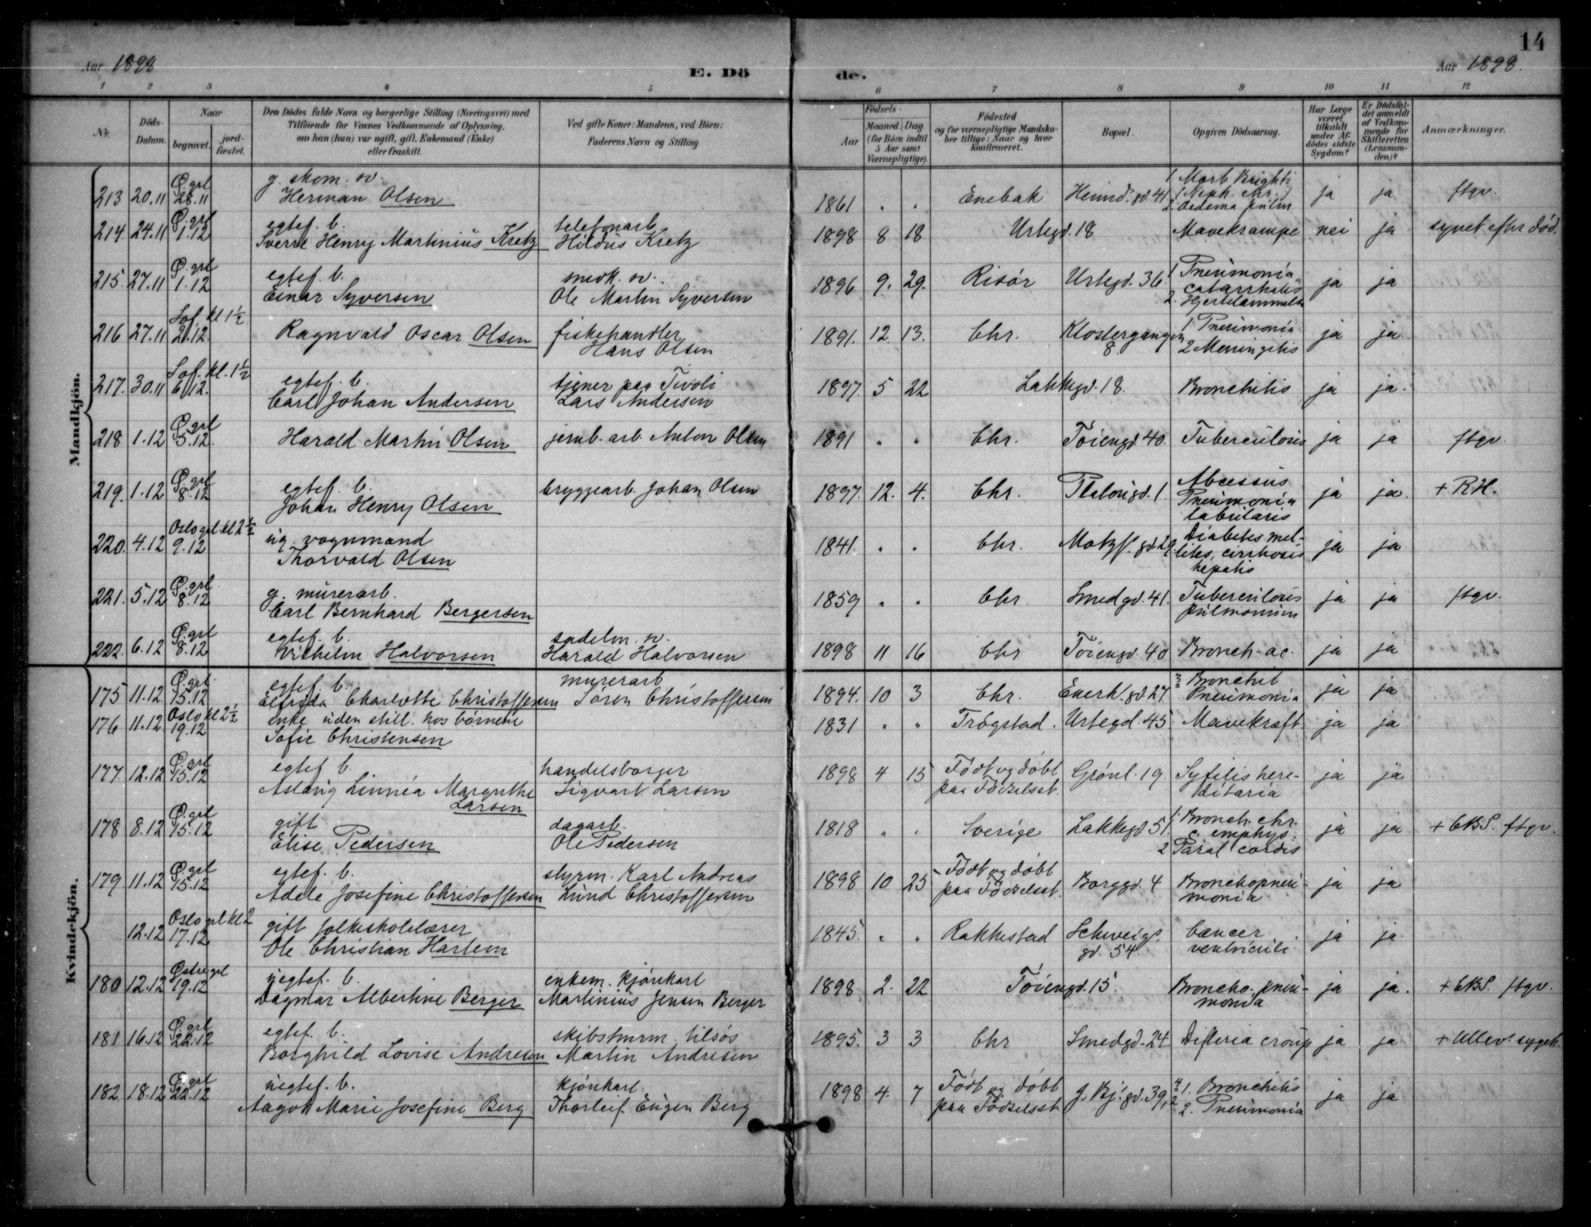 14
Aar 1898
E. Dö
de.
Aar 1898.
1 2 3 4 5 6 7 8 9 10 11 12
No. Döds-Datum. Naar begravet. jord-fæstet. Den Dödes fulde Navn og borgerlige Stilling (Næringsvei) med Tilföiende for Voxnes Vedkommende af Oplysning, om han (hun) var ugift, gift, Enkemand (Enke) eller fraskilt. Ved gifte Koner: Mandens, ved Börn: Faderens Navn og Stilling
Födsels- Aar Maaned. Dag (for Börn indtil 5 Aar samt Værnepligtige). Födested og for værnepligtige Mandskaber tillige: Naar og hvor konfirmeret. Bopæl. Opgiven Dödsaarsag. Har Læge været tilkaldt under Afdödes sidste Sygdom? Er Dödsfaldet anmeldt af Vedkommende for Skifteretten (Lensmanden)? Anmærkninger.
Mandkjön.
213 20.11 Ø. grl 28.11 g. skom. sv. Herman Olsen 1861 " " Enebak Heimd. gd 41 1 Morb Brighti (Neph. chr.) 2. Oedema pulm ja ja ftgv.
214 24.11 Ø. grl 1.12 egtef. b. Sverre Henry Martinius Kretz telefonarb. Hildus Kretz 1898 8 18 Urtegd. 18 Mavekrampe nei ja synet efter død.
215 27.11 Ø. grl 1.12 egtef. b. Einar Syversen snedk. sv. Ole Martin Syversen 1896 9. 29. Risör Urtegd. 36 1 Pneumonia catarrhalis 2 Hjertelammelse ja ja
216 27.11 Sof. kl 1½ 2.12 Ragnvald Oscar Olsen fiskehandler Hans Olsen 1891. 12. 13. Chr. Klostergangen 8 1 Pneumonia 2 Meningitis ja ja
217. 30.11 Sof. kl. 1½ 6.12 egtef. b. Carl Johan Andersen tjener paa Tivoli Lars Andersen 1897. 5 22 Lakkegd. 18 Bronchitis ja ja.
218 1.12 Ø. grl 5.12 Harald Martin Olsen jernb. arb. Anton Olsen 1891 " " Chr. Töiengd 40. Tuberculosis ja ja ftgv.
219. 1.12 Ø. grl 8.12 egtef. b. Johan Henry Olsen bryggearb Johan Olsen 1897. 12. 4. Chr. 1 Abcessus Pneumonia lobularis ja ja. + RH.
220. 4.12 Oslo grl kl 2½ 9.12 ug. vognmand Thorvald Olsen 1841. " " Chr. Motzf. gd 29 Diabetes mellites, cirrhosis hepatis ja ja
221. 5.12 Ø. grl 8.12 g. murerarb. Carl Bernhard Bergersen 1859 " " Chr Smedgd. 41. Tuberculosis pulmonum ja ja ftgv.
222. 6.12 Ø. grl 8.12 egtef. b. Vilhelm Halvorsen sadelm. sv. Harald Halvorsen 1898 11 16 Chr Töiengd. 40 Bronch. ac. ja ja
Kvindekjön.
175 11.12 Ø. grl 15.12 egtef. b. Elfrida Charlotte Christoffersen murerarb Sören Christoffersen 1894. 10 3 Chr. Enerh. gd 27 Bronchit Pneumonia ja ja
176 11.12 Oslo kl 2½ 19.12 enke uden still. hos börnene Sofie Christensen 1831 " " Trögstad. Urtegd 45 Mavekræft ja ja
177. 12.12 Ø. grl 15.12 egtef. b. Aslaug Linnéa Margrethe Larsen handelsborger Sigvart Larsen 1898 4 15 Födt og döbt paa Födselsst. Grönl. 19. Syfilis hereditaria ja ja
178 8.12 Ø. grl 15.12 gift Elise Pedersen dagarb. Ole Pedersen 1818 " " Sverige Lakkegd 51. 1 Bronch. chr. c. emphys. 2 Paral cordis ja ja + CBS. ftgv.
179. 11.12 Ø. grl 15.12 egtef. b. Adele Josefine Christoffersen styrm. Karl Andreas Lund Christoffersen 1898 10 25 Födt og döbt paa Födselsst. Borggd. 4 Bronchopneumonia ja ja
12.12 Oslo grl kl 2 17.12 gift folkeskolelærer Ole Christian Harlem 1845. " " Rakkestad Schweigs. gd. 54. Cancer ventriculi ja ja
180 12.12 Østre grl 19.12 uegtef. b. Dagmar Albertine Berger enkem. kjörekarl Martinius Jensen Berger 1898 2. 22 Töiengd. 15. Broncho. pneumonia ja ja. + CBS. ftgv.
181 16.12 Ø. grl 22.12 egtef. b. Borghild Lovise Andresen skibstmrm. tilsös Martin Andresen 1895. 3 3 Chr Smedgd. 24 Difteria croup ja ja + Ullev. sygeh.
182 18.12 Ø. grl 22.12 uegtef. b. Aagot Marie Josefine Berg kjörekarl Thorleif Eugen Berg 1898 4. 7 Födt og döbt paa Födselsst. g. Bj. gd. 39, 1. Bronchitis 2. Pneumonia ja ja